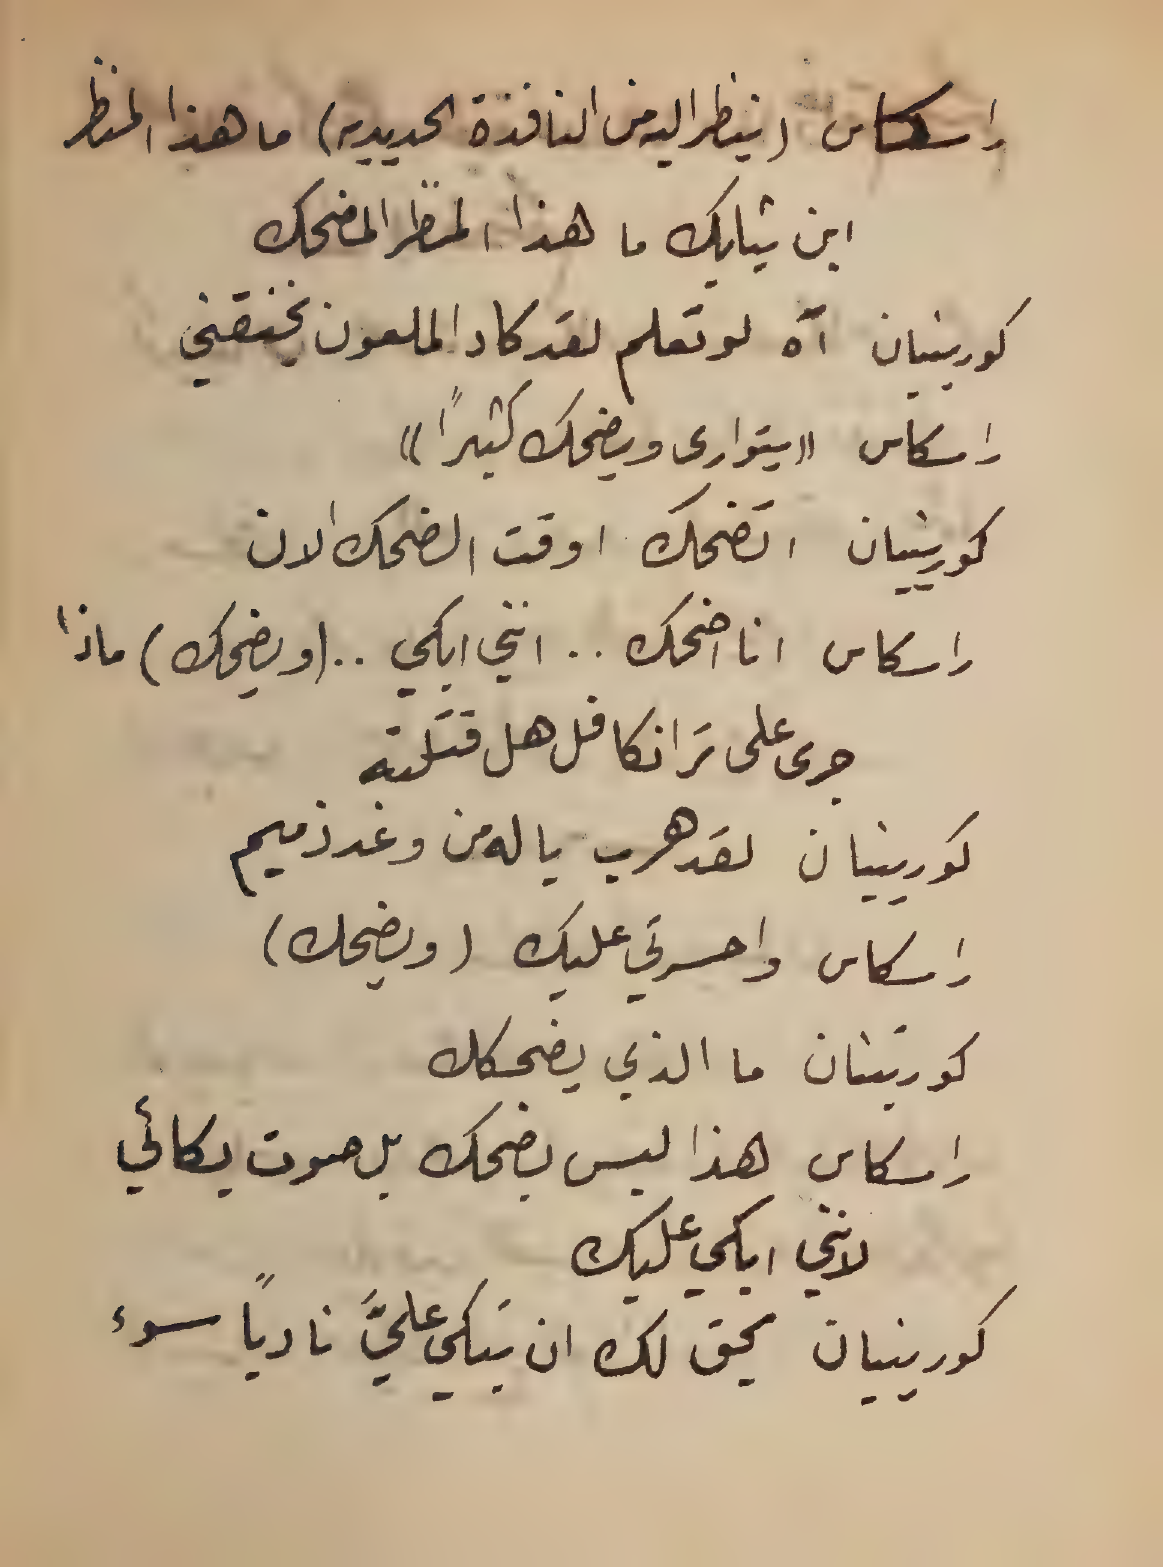 راسكاس (ينظر اليه من النافذة الحديديه) ما هذا المنظر
اين ثيابك ما هذا المنظر المضحك
كورينيان آه لو تعلم لقد كاد الملعون يخنقني
راسكاس «يتوارى ويضحك كثيراً»
كورينيان اتضحك اوقت الضحك الان
راسكاس انا اضحك .. انني ابكي .. (ويضحك) ماذا
جرى على ترانكافل هل قتلته
كورينيان لقد هرب يا له من وغد ذميم
راسكاس واحسرتي عليك (ويضحك)
كورينيان ما الذي يضحكك
راسكاس هذا ليس بضحك بل صوت بكائي
لانني ابكي عليك
كورينيان يحق لك ان تبكي عليَّ نادباً سوء